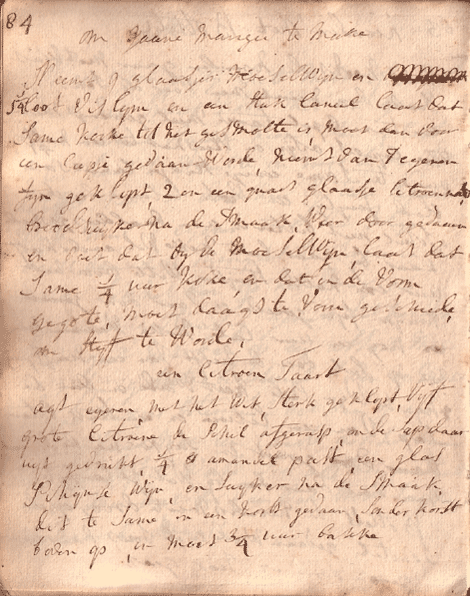 84
om Jaune Mangee te Make
Neemt 9 glaasjes Moeselwijn en
5/4 loot Vislym en een stuk Caneel laat dat
Same Koke tot het gesmolte is, moet dan door
een Teepie gedaan Worde, neemt dan 7 eyeren
fyn geklopt, 2 en een quart glaasje Citroen
Broodsuyker na de Smaak, door gedaen
en doet dat by de Moeselwyn, laat dat
Same 1/4 uur Koke, en dat in de Vorm
gegote, moet daags te Vorn geschiede,
om Styf te Worde,
een Citroen Taart
agt eyeren, met het Wit, Sterk geklopt, Vyf
grote Citroene de Schil afgerasp, en de Sap daar
uyt gedrukt, 1/4 amandel past, een glas
Wyn, en Suyker na de Smaak
dit te Same in een Korst gedaan, Sonder Korst
boven op, en moet 3/4 uur bakke